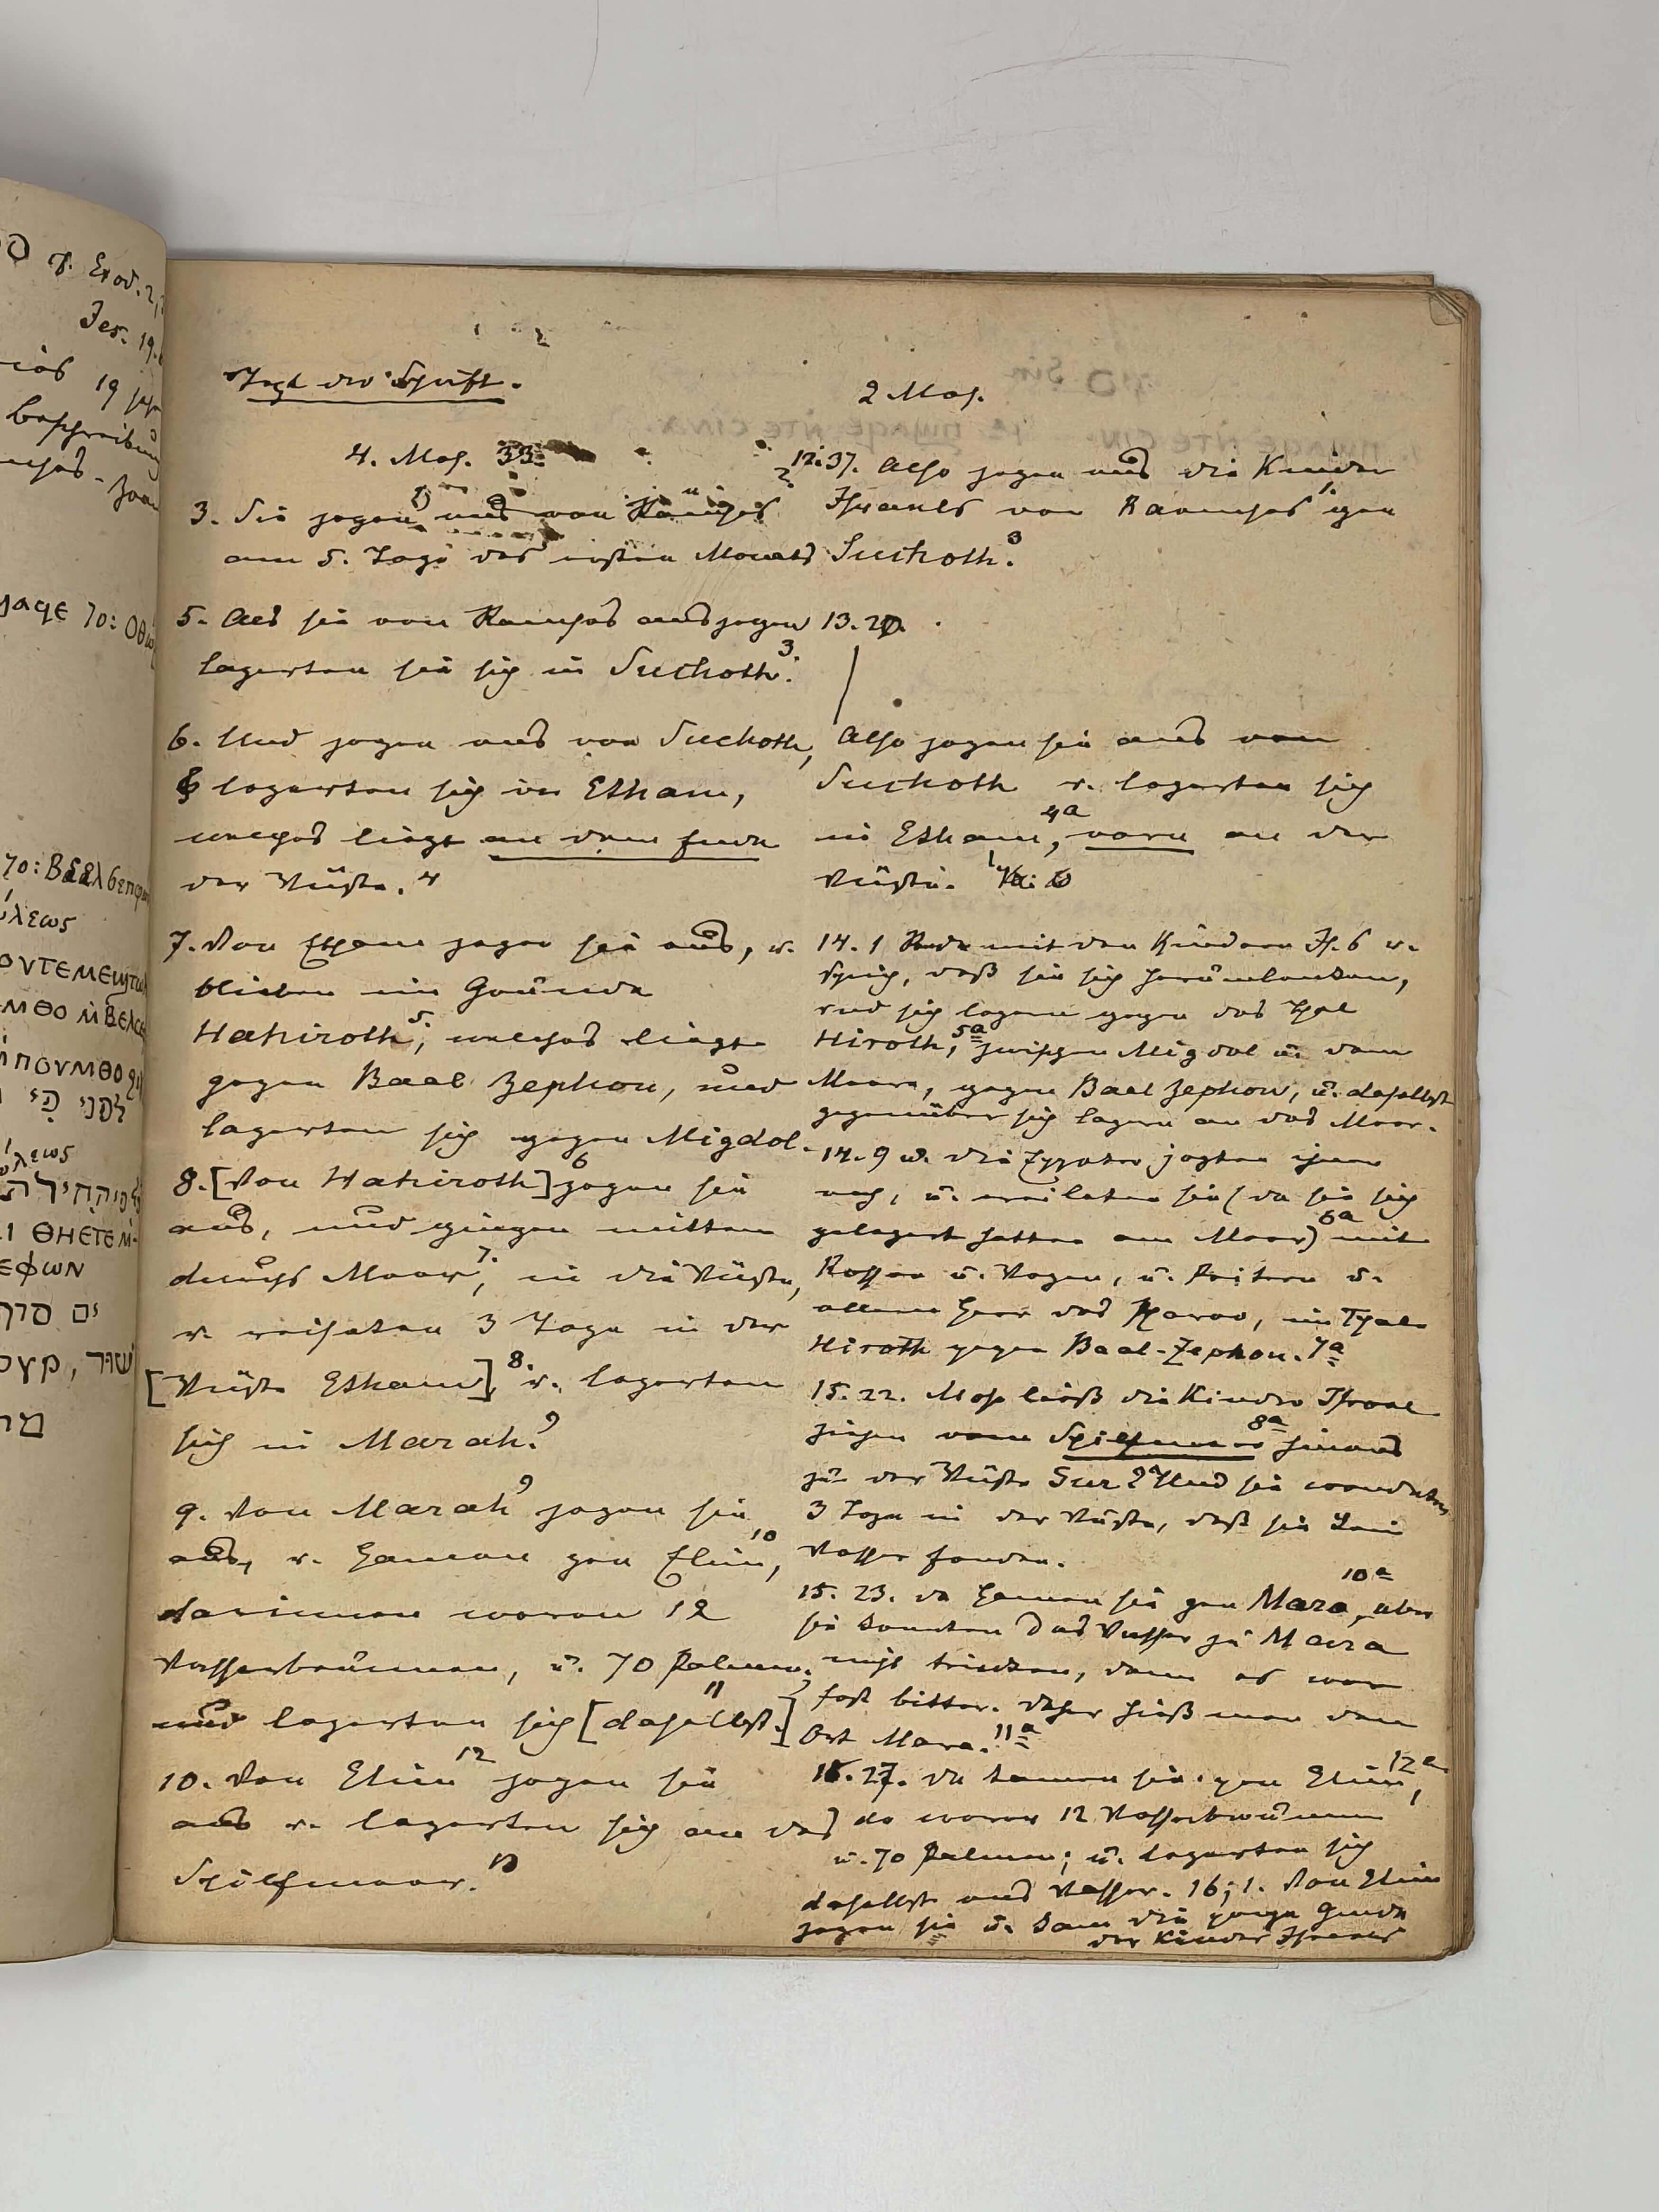 cf. Exod. 2,
Jes. 19.
19
Beschreibung
70: Βεελσεπφων
ύλεως
ΕΦΩΝ
ים סוף
שור,
Text der Schrift.
4. Mos. 33.
3. Sie zogen aus von Ramses
am 5. Tage des ersten Monats
5. Als sie von Ramses auszogen
lagerten sie sich in Suchoth.3
6. Und zogen aus von Suchoth,
lagerten sich in Etham,
welches liegt an dem Ende
der Wüste.4
7. Von Etham zogen sie aus, u.
blieben im Grunde
Hahiroth5, welches liegt
gegen Baal Zephon, und
lagerten sich gegen Migdol.
8. [Von Hahiroth]6 zogen sie
aus, und gingen mitten
durchs Meer7, in die Wüste,
u. reiseten 3 Tage in der
[Wüste Etham],8 u. lagerten
sich in Marah.9
9. Von Marah9 zogen sie
aus, u. kamen gen Elim,10
darinnen waren 12
Wasserbrunnen, u. 70 Palmen;
und lagerten sich [daselbst.]11
10. Von Elim12 zogen sie
aus u. lagerten sich an das
Schilfmeer.13
2 Mos.
12.37. Also zogen aus die Kinder
Israels von Raemses gen
Suchoth.3
13.20.
Also zogen sie aus von
Suchoth u. lagerten sich
in Etham,4a vorn an der
Wüste.
14.1 Rede mit den Kindern Is. u.
sprich, daß sie sich herumlenken,
und sich lagern gegen das Thal
Hiroth,5a zwischen Migdol u. dem
Meere, gegen Baal Zephon, u. daselbst
gegenüber sich lagern an das Meer.
14.9 u. die Egypter jagten ihnen
nach, u. ereileten sie (da sie sich
gelagert hatten am Meer)6a mit
Rossen u. Wagen, u. Reitern u.
allem Heer des Pharao, im Thale
Hiroth gegen Baal-Zephon.7a
15.22. Mose ließ die Kinder Israel
ziehen vom Schilfmeer8a hinaus
zu der Wüste Sur9a Und sie wanderten
3 Tage in der Wüste, daß sie kein
Wasser fanden.
15.23. da kamen sie gen Mara,10a aber
sie konnten das Wasser zu Mara
nicht trinken, denn es war
fast bitter. Daher hieß man den
Ort Mara.11a
15.27. Da kamen sie gen Elim,12a
da waren 12 Wasserbrunnen
u. 70 Palmen; u. lagerten sich
daselbst ans Wasser. 16,1. Von Elim
zogen sie u. kam die ganze Gemde
der Kinder Israels